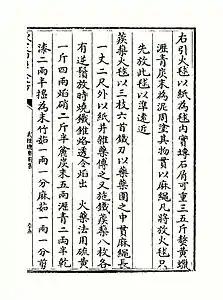 右引火毬以紙為毬內實磚石屑可重三五斤熬黃蠟
瀝青炭末為泥周塗其物貫以麻繩凡將放火毬只
先放此毬以準遠近
蒺藜火毬以三枝六首鐵刃以藥藥團之中貫麻繩長
一丈二尺外以紙并雜藥傅之又施鐵蒺藜八枚各
有逆鬚放時燒鐵錐烙透令焰出 火藥法用硫黃
一斤四兩焰硝二斤半麄炭末五兩瀝青二兩半乾
漆二兩半擣為末竹茹一兩一分麻茹一兩一分剪